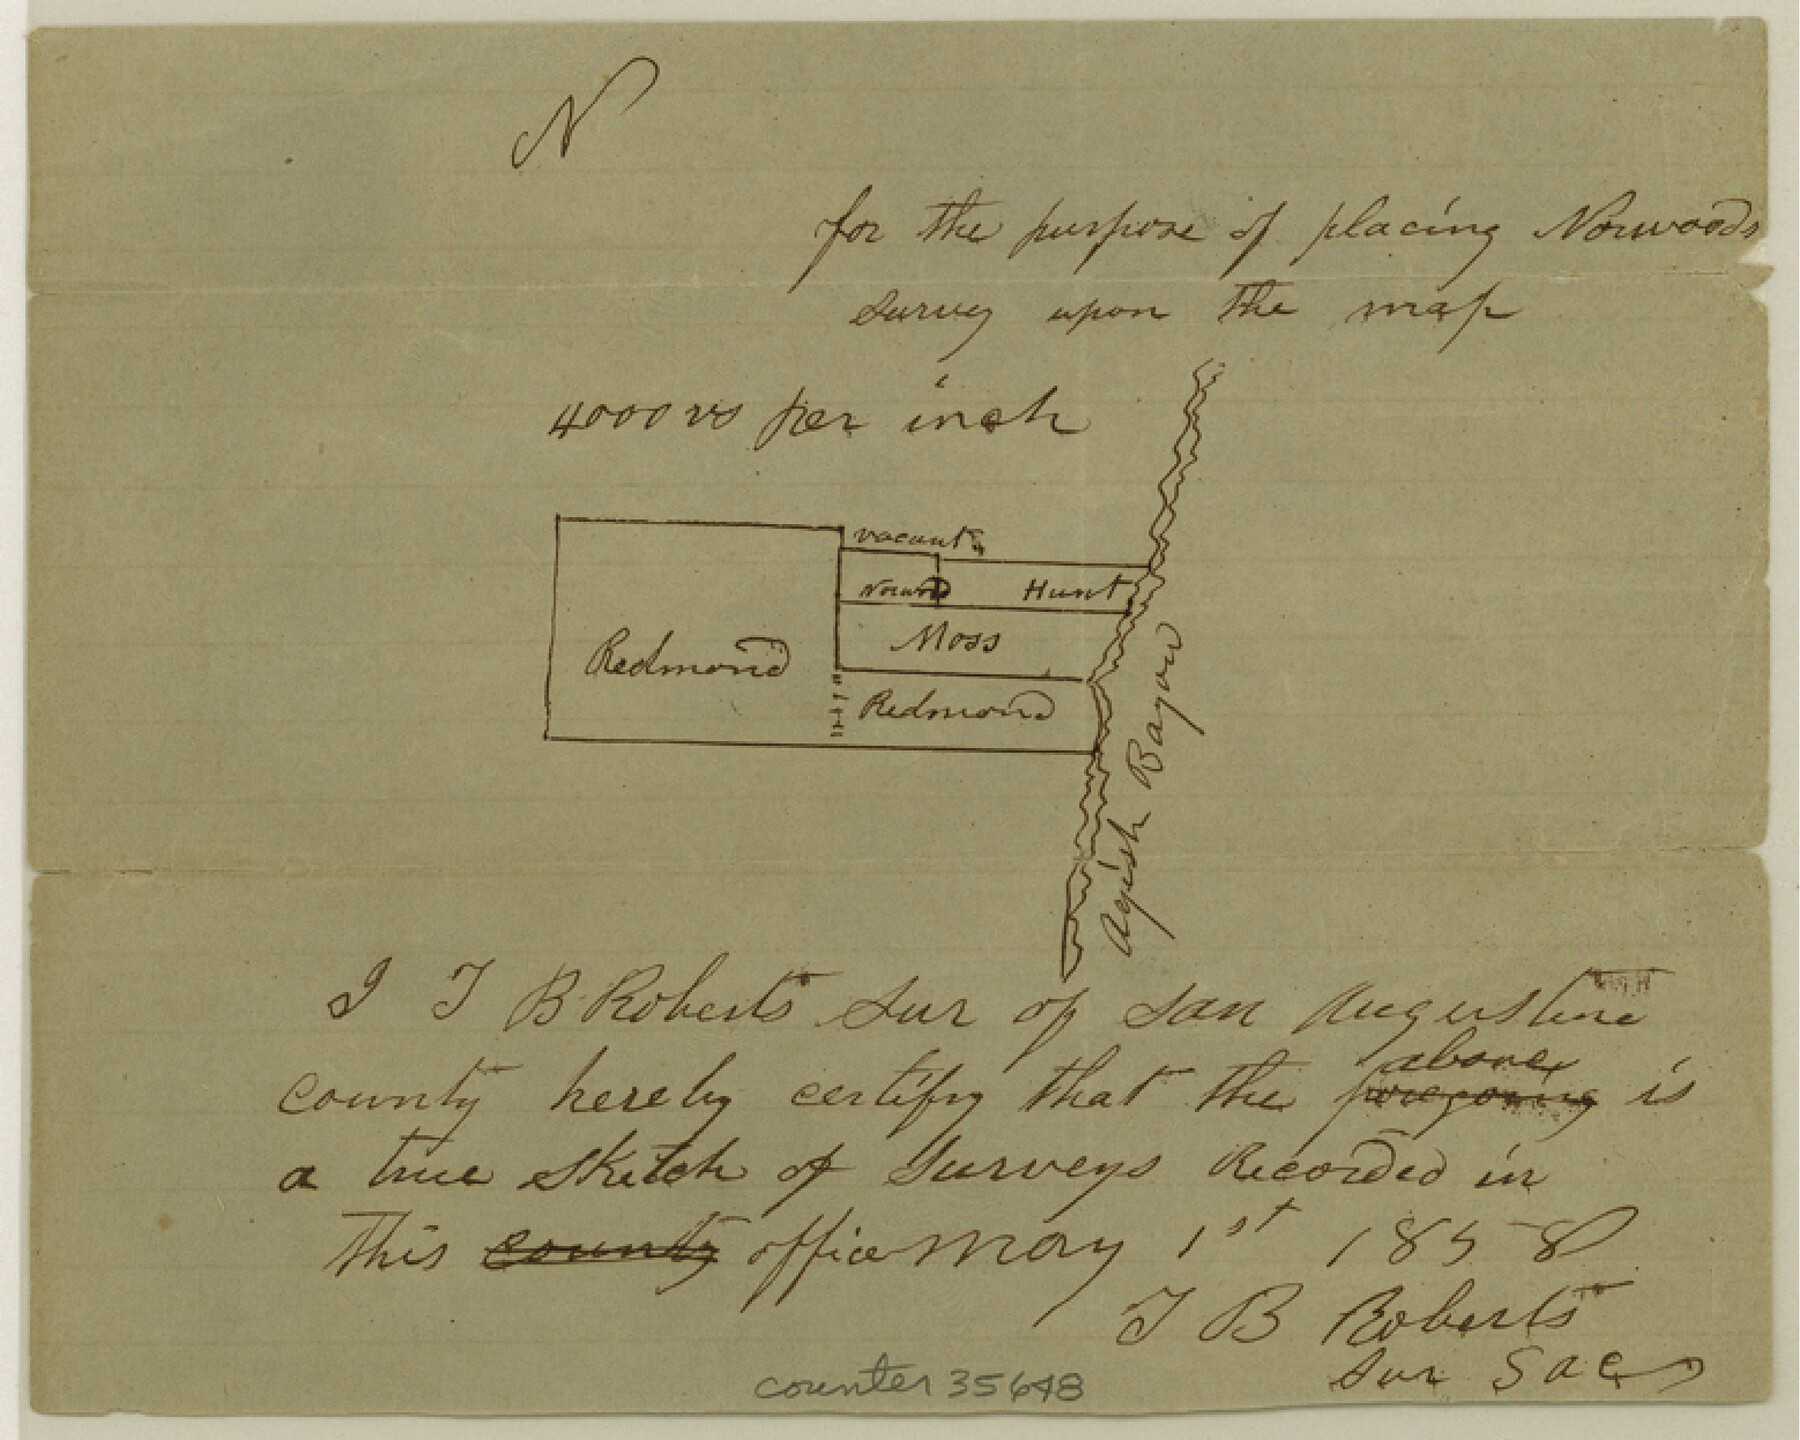 N
for the purpose of placing Norwoods
survey upon the map
4000 vs per inch
vacant
Norwod
Hunt
Moss
Redmond
Redmond
Ayish Bayou
I T B Roberts Sur of San Augustine
county hereby certify that the above foregoing is
a true Sketch of Surveys Recorded in
this county office May 1st 1858
T B Roberts
Sur S A C
counter 35648